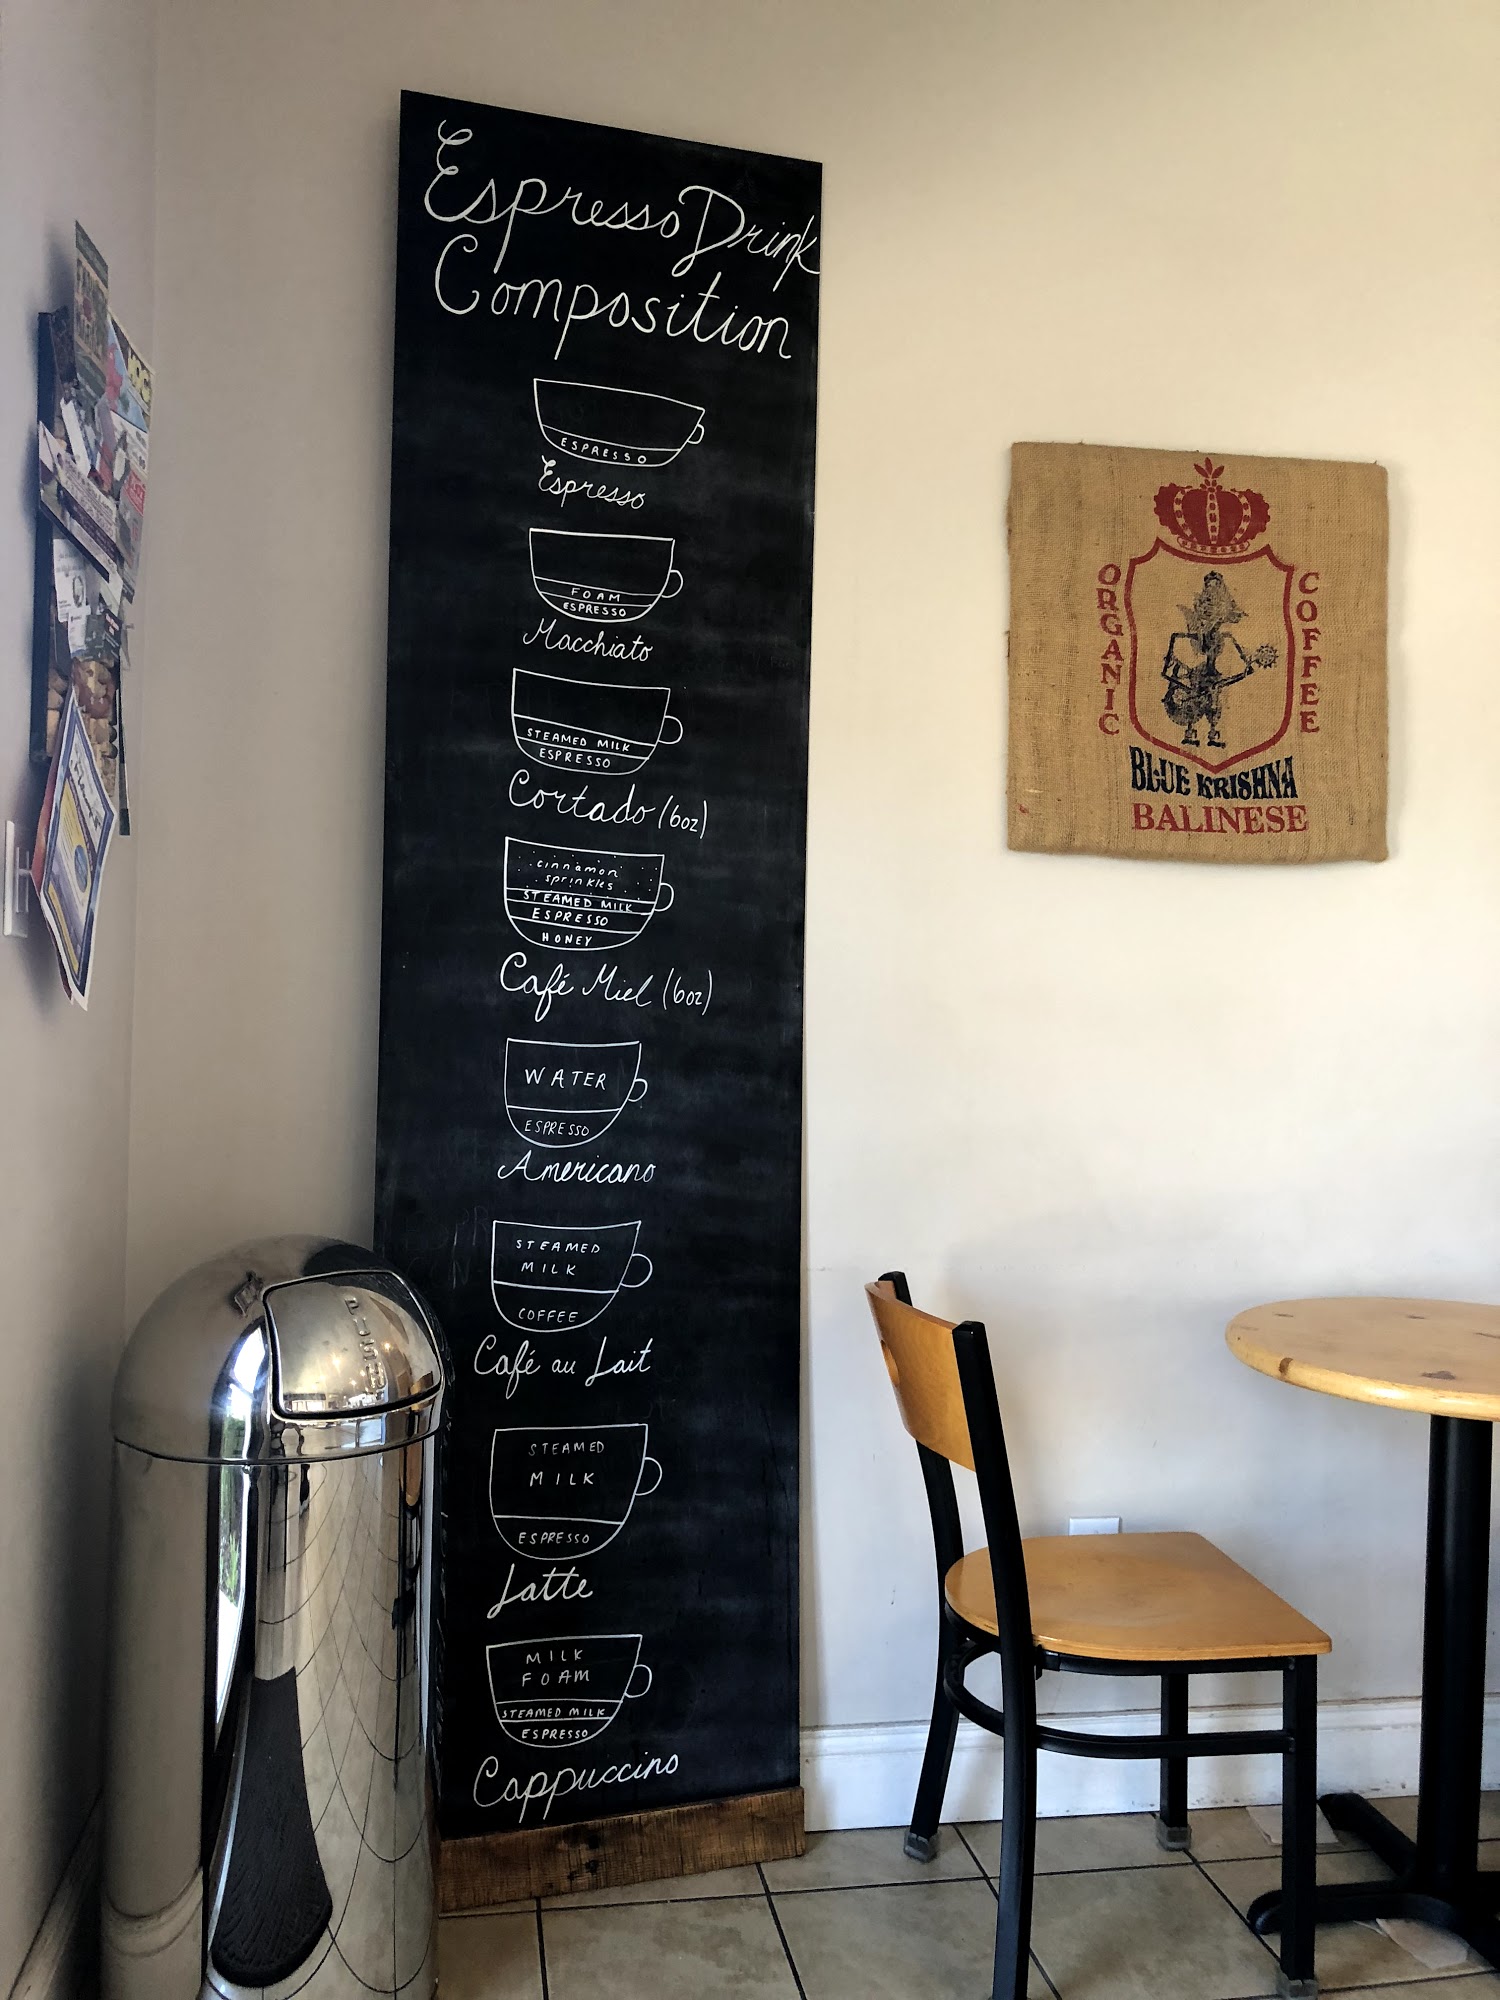 Espresso Drink
Composition
ESPRESSO
Espresso
FOAM
ESPRESSO
Macchiato
STEAMED MILK
ESPRESSO
Cortado (6oz)
cinnamon
sprinkles
STEAMED MILK
ESPRESSO
HONEY
Café Miel (6oz)
WATER
ESPRESSO
Americano
STEAMED
MILK
COFFEE
Café au Lait
STEAMED
MILK
ESPRESSO
Latte
MILK
FOAM
STEAMED MILK
ESPRESSO
Cappuccino
PUSH
ORGANIC
COFFEE
BLUE KRISHNA
BALINESE